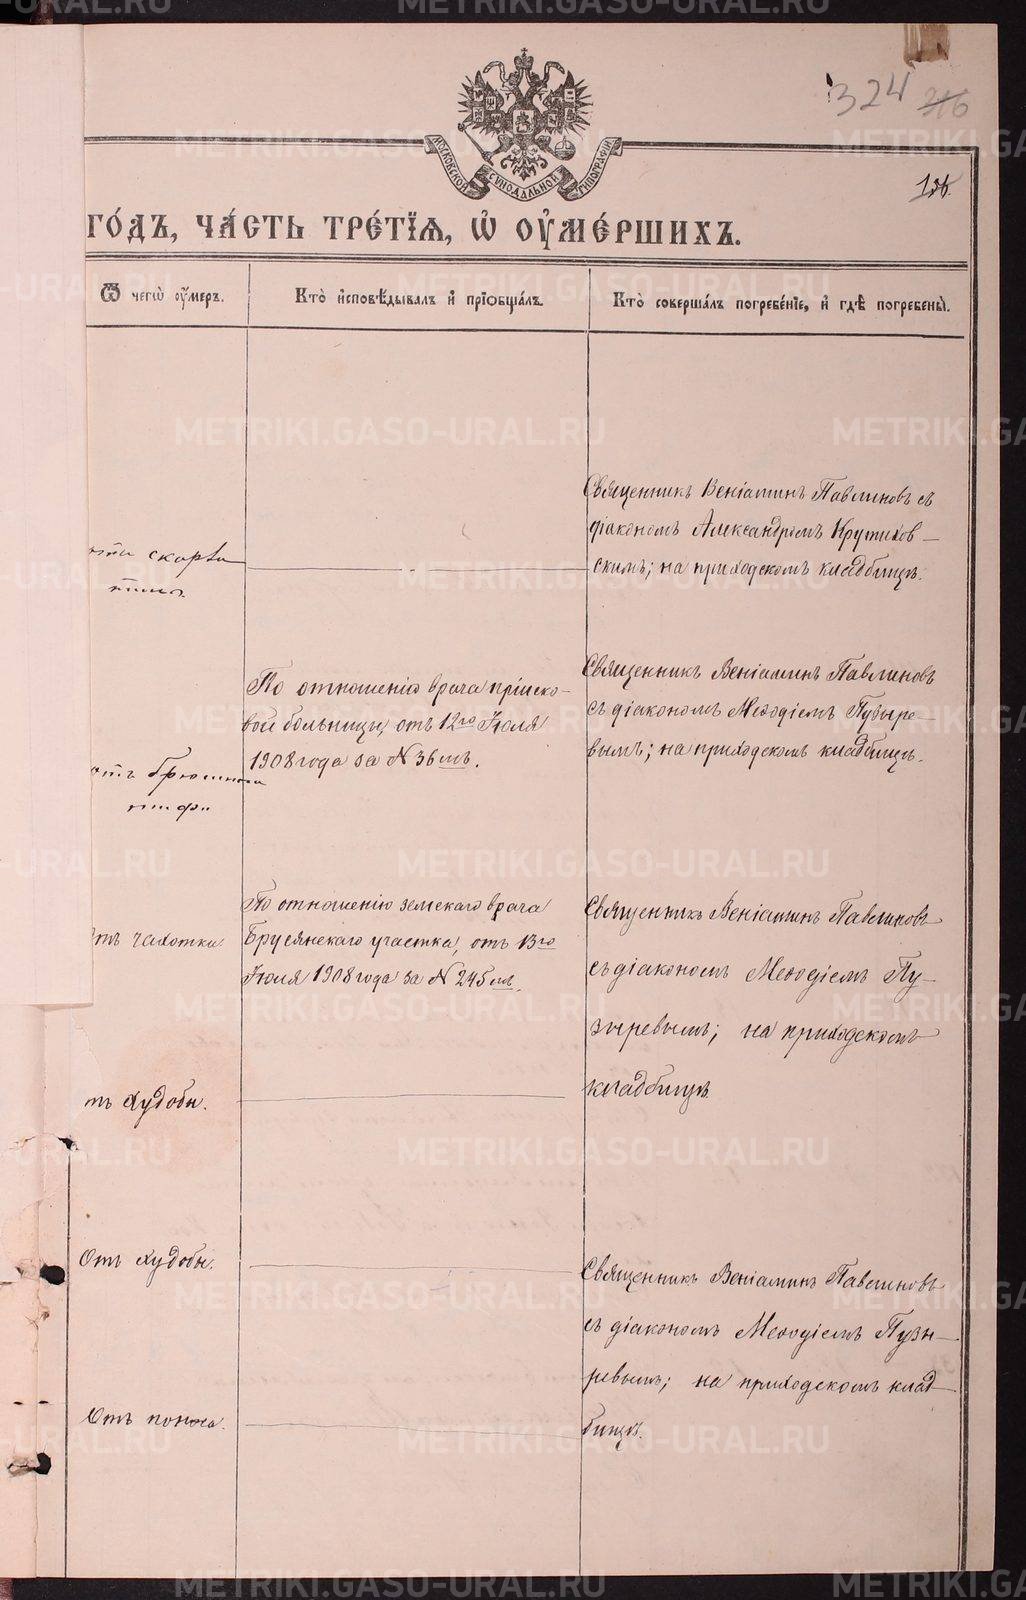 324 316
МОСКОВСКОЙ СѴНОДАЛЬНОЙ ТИПОГРАФІИ
го́дъ, ча́сть тре́тїѧ, ѡ҆ ᲂу҆ме́ршихъ.
Ѿ чегѡ̀ ᲂу҆́меръ.
Кто̀ и҆сповѣ́дывалъ и҆ прїѡбща́лъ.
Кто̀ соверша́лъ погребе́нїе, и҆ гдѣ̀ погребены̀.
Священникъ Веніаминъ Павлиновъ съ
діакономъ Александромъ Крутихов–
скимъ; на приходскомъ кладбищѣ.
скарла
тины
По отношенію врача пріиско-
вой больницы, отъ 12го Іюля
1908 года за № 36мъ.
отъ брюшного
тифа
Священникъ Веніаминъ Павлиновъ
съ діакономъ Меѳодіемъ Пузыре–
вымъ; на приходскомъ кладбищѣ.
Отъ чахотки
По отношенію земскаго врача
Брусянскаго участка, отъ 13го
Іюля 1908 года за № 245мъ.
Священникъ Веніаминъ Павлиновъ
съ діакономъ Меѳодіемъ Пу–
зыревымъ; на приходскомъ
кладбищѣ.
тъ худобы.
Отъ худобы.
Священникъ Веніаминъ Павлиновъ
съ діакономъ Меѳодіемъ Пузы–
ревымъ; на приходскомъ клад–
бищѣ.
Отъ поноса.
METRIKI.GASO-URAL.RU